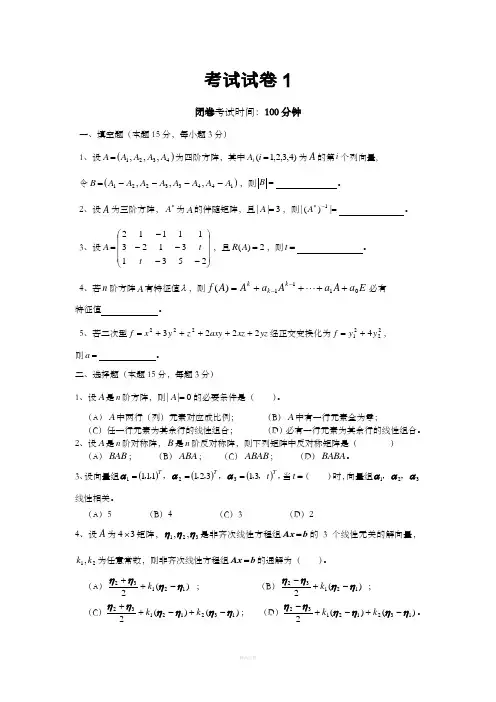 考试试卷1
闭卷考试时间：100分钟
一、填空题（本题15分，每小题3分）
1、设 A=(A₁,A₂,A₃,A₄)为四阶方阵，其中 Aᵢ(i=1,2,3,4)为 A 的第 i 个列向量，
令 B=(A₁−A₂,A₂−A₃,A₃−A₄,A₄−A₁)，则|B|= 。
2、设 A 为三阶方阵，A* 为 A 的伴随矩阵，且|A|=3，则|(A*)⁻¹|= 。
3、设 A= ( 2 1 −1 1 1
3 −2 1 −3 t
1 t −3 5 −2 )，且 R(A)=2，则 t= 。
4、若 n 阶方阵 A 有特征值 λ，则 f(A)=Aᵏ+aₖ₋₁Aᵏ⁻¹+⋯+a₁A+a₀E 必有
特征值 。
5、若二次型 f=x²+3y²+z²+2axy+2xz+2yz 经正交变换化为 f=y₁²+4y₂²，
则 a= 。
二、选择题（本题15分，每题3分）
1、设 A 是 n 阶方阵，则|A|=0的必要条件是（ ）。
（A）A 中两行（列）元素对应成比例； （B）A 中有一行元素全为零；
（C）任一行元素为其余行的线性组合； （D）必有一行元素为其余行的线性组合。
2、设 A 是 n 阶对称阵，B 是 n 阶反对称阵，则下列矩阵中反对称矩阵是（ ）
（A）BAB； （B）ABA； （C）ABAB； （D）BABA。
3、设向量组 α₁=(1,1,1)ᵀ，α₂=(1,2,3)ᵀ，α₃=(1,3，t)ᵀ，当 t=（ ）时，向量组 α₁，α₂，α₃
线性相关。
（A）5 （B）4 （C）3 （D）2
4、设 A 为 4×3矩阵，η₁,η₂,η₃是非齐次线性方程组 Ax=b 的 3 个线性无关的解向量，
k₁,k₂为任意常数，则非齐次线性方程组 Ax=b 的通解为（ ）。
（A）(η₂+η₃)/2+k₁(η₂−η₁)； （B）(η₂−η₃)/2+k₁(η₂−η₁)；
（C）(η₂+η₃)/2+k₁(η₂−η₁)+k₂(η₃−η₁)； （D）(η₂−η₃)/2+k₁(η₂−η₁)+k₂(η₃−η₁)。